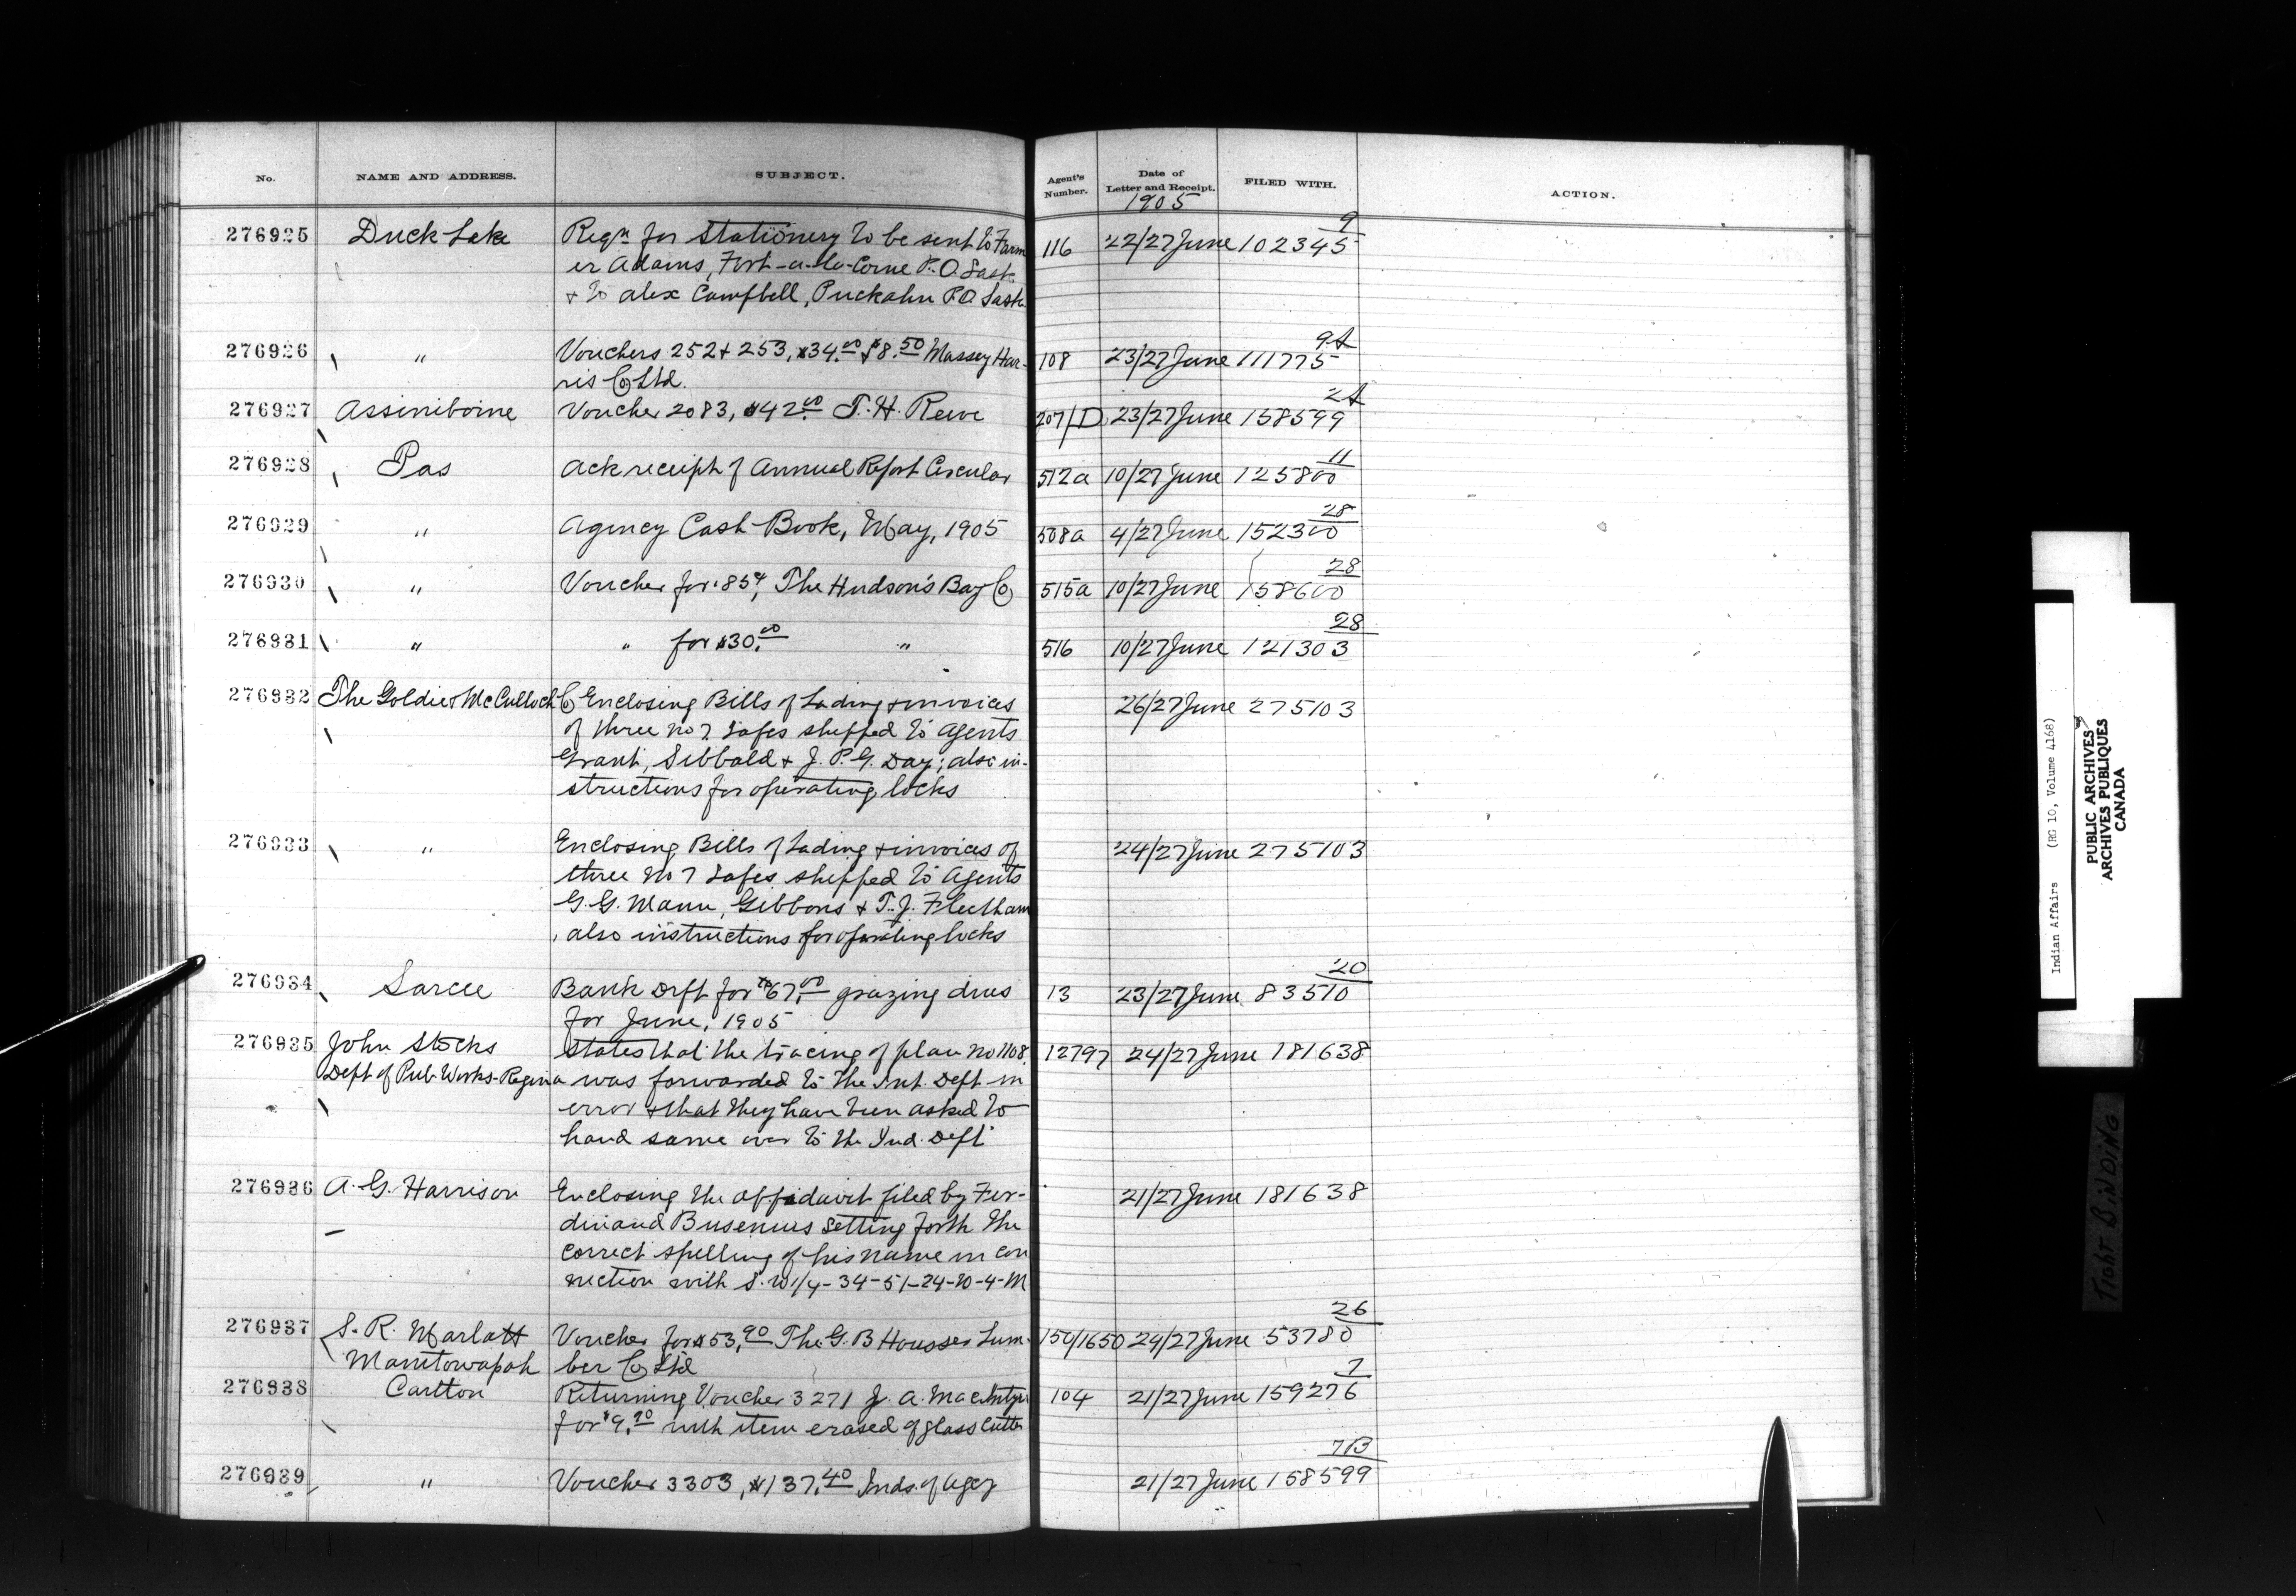 No. NAME AND ADDRESS. SUBJECT. Agent's Number. Date of Letter and Receipt. FILED WITH. ACTION.
1905
276925 Duck Lake Reqn for Stationery to be sent to Farm 116 22/27 June 102345 9
er Adams, Fort-a-la-Corne P.O. Sask
+ to Alex Campbell, Puckahn P.O Sask
276926 " Vouchers 252 + 253, $34.00 + $8.50 Massey Har- 108 23/27 June 111775 9A
ris Co Ltd.
276927 Assiniboine Voucher 2083, $42.00 T. H. Reeve 207/D 23/27 June 158599 2A
276928 Pas Ack receipt of Annual Report Circular 512a 10/27 June 125800 11
276929 " Agency Cash Book, May, 1905 508a 4/27 June 152300 28
276930 " Voucher for .85¢, The Hudson's Bay Co 515a 10/27 June 158600 28
276931 " " for $30.00 " 516 10/27 June 121303 28
276932 The Goldie & McCulloch Co Enclosing Bills of Lading & invoices 26/27 June 275103
of three No 7 Safes shipped to Agents
Grant, Sibbald + J. P. G. Day; also in-
structions for operating locks
276933 " Enclosing Bills of Lading & invoices of 24/27 June 275103
three No 7 Safes shipped to Agents
G. G. Mann, Gibbons + T. J. Fleetham
, also instructions for operating locks
276934 Sarcee Bank Drft for $67.00 grazing dues 13 23/27 June 83510 20
for June, 1905
276935 John Stocks States that the tracing of plan No 1108 12797 24/27 June 181638
Dept of Pub Works-Regina was forwarded to the Int. Dept in
error & that they have been asked to
hand same over to the Ind. Dept
276936 A. G. Harrison Enclosing the affidavit filed by Fer- 21/27 June 181638
dinand Busenius setting forth the
correct spelling of his name in con
nection with S.W 1/4-34-51-24-W-4-M
276937 S. R. Marlatt Voucher for $53.90 The G. B Housser Lum- 150/1650 24/27 June 53780 26
Manitowapah ber Co Ltd
276938 Carlton Returning Voucher 3271 J. A. MacIntyre 104 21/27 June 159276 7
for $9.90 with item erased of glass cutter
276939 " Voucher 3303, $137.40 Inds. of Agcy 21/27 June 158599 7B
Indian Affairs (RG 10, Volume 4168)
PUBLIC ARCHIVES
ARCHIVES PUBLIQUES
CANADA
TIGHT BINDING